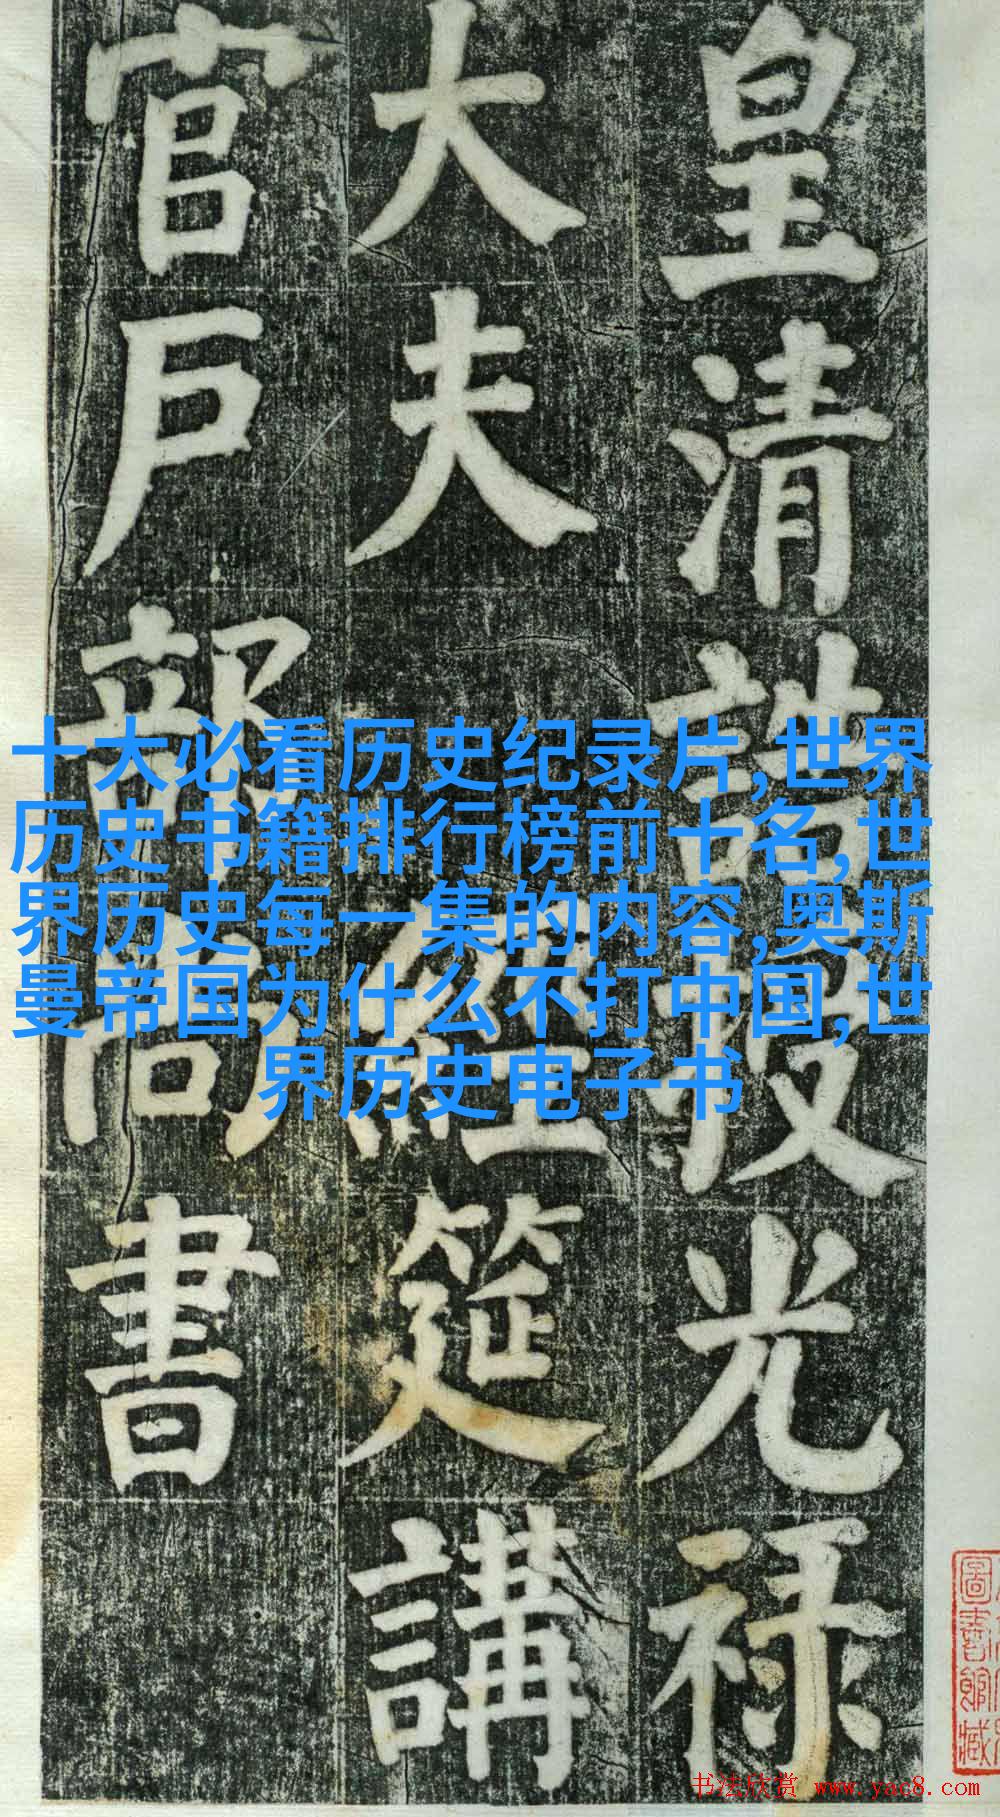 皇清誥授光禄
大夫經筵講
官戶部尚書
十大必看历史纪录片,世界
历史书籍排行榜前十名,世
界历史每一集的内容,奥斯
曼帝国为什么不打中国,世
界历史电子书
圖書館藏
书法欣赏 www.yac8.com